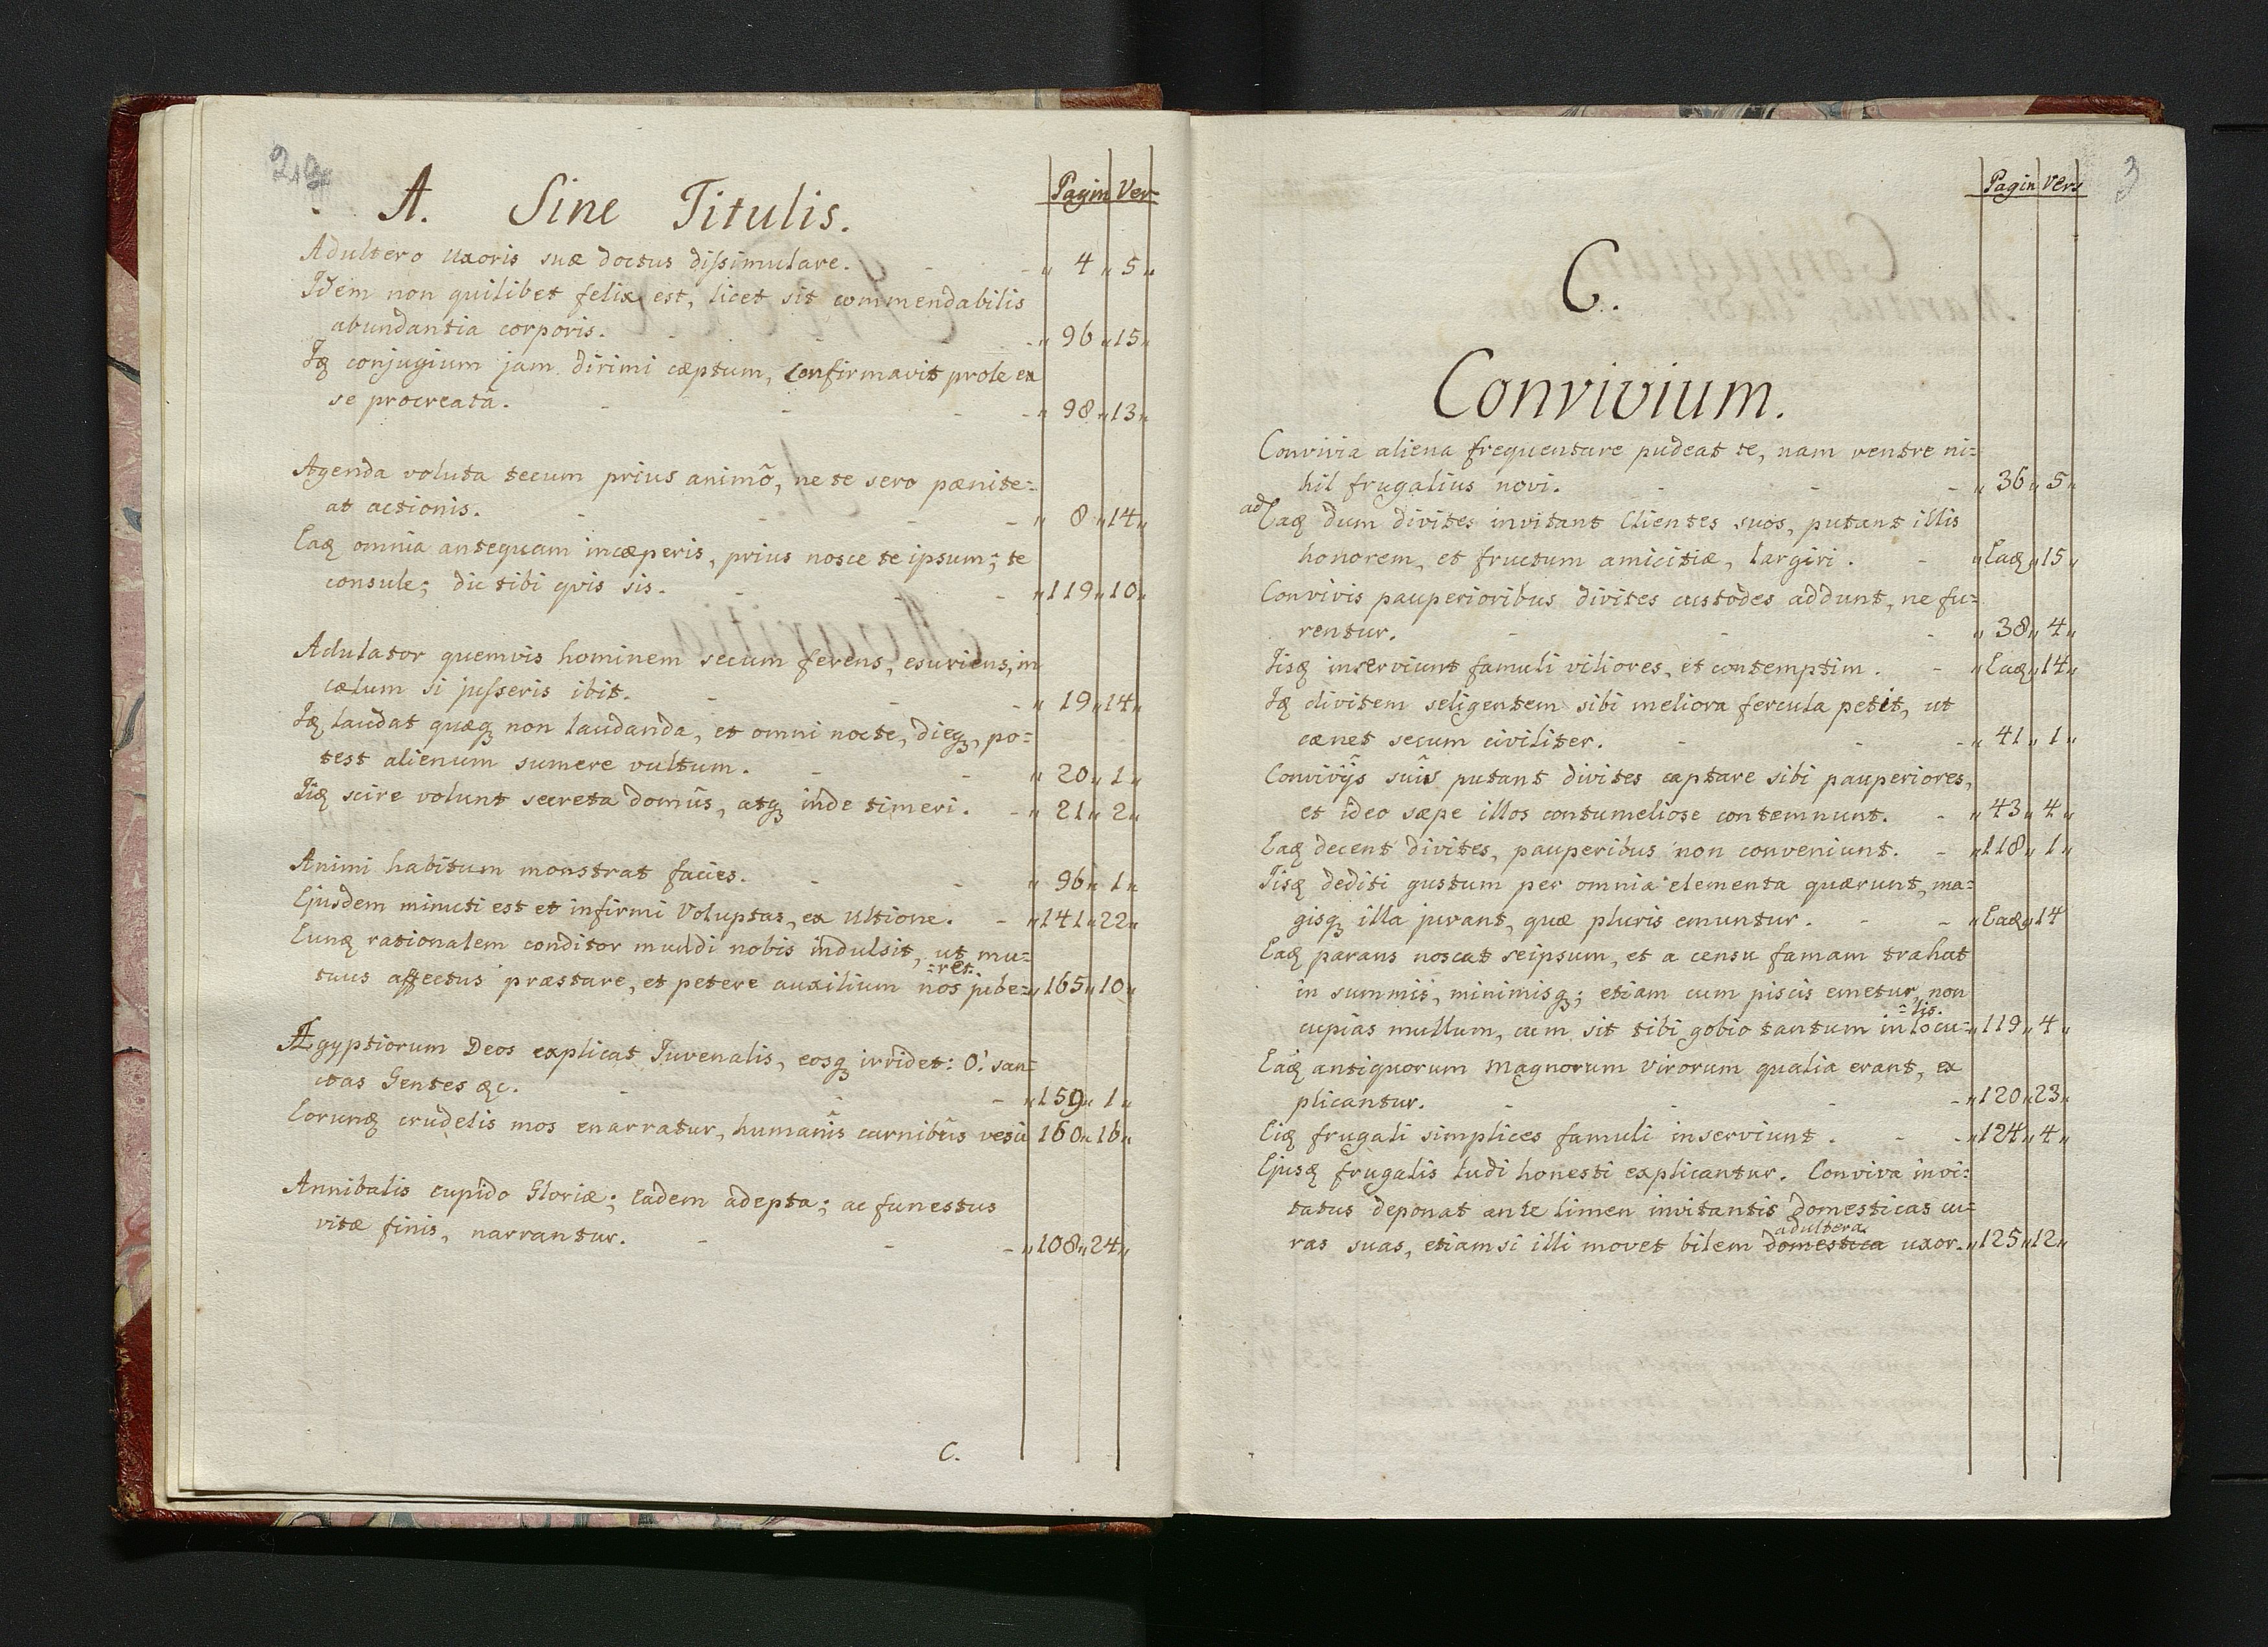 A. Sine Titulis.
Pagin Ver
Adultero uxoris suæ doctus dissimulare. - - „ 4 „ 5 „
Idem non quilibet felix est, licet sit commendabilis
abundantia corporis. - - - „ 96 „ 15 „
Iꝗ conjugium jam dirimi cæptum, confirmavit prole ex
se procreatâ. - - - - „ 98 „ 13 „
Agenda voluta tecum prius animõ, ne te sero pænite=
at actionis. - - - - „ 8 „ 14 „
Eaꝗ omnia antequam incæperis, prius nosce te ipsum; te
consule; dic tibi qvis sis. - - - „ 119 „ 10 „
Adulator quemvis hominem secum ferens, esuriens, in
cælum si jusseris ibit. - - - „ 19 „ 14 „
Iꝗ laudat quæꝗ non laudanda, et omni nocte, dieꝗ, po=
test alienum sumere vultum. - - „ 20 „ 1 „
Iiꝗ scire volunt secreta domûs, atꝗ inde timeri. - „ 21 „ 2 „
Animi habitum monstrat facies. - - „ 96 „ 1 „
Ejusdem minuti est et infirmi Voluptas, ex Ultione. - „ 141 „ 22 „
Eunꝗ rationalem conditor mundi nobis indulsit, ut mu=
tuus affectus præstare, et petere auxilium nos jube= „ 165 „ 10 „
=ret.
Ægyptiorum Deos explicat Juvenalis, eosꝗ irridet: O! san=
ctas Gentes &c. - - - „ 159 „ 1 „
Eorunꝗ crudelis mos enarratur, humanîs carnibûs vesci 160 „ 16 „
Annibalis cupido Gloriæ; Eadem adepta; ac funestus
vitæ finis, narrantur. - - - „ 108 „ 24 „
C.
3
Pagin Vers
C.
Convivium.
Convivia aliena frequentare pudeat te, nam ventre ni=
hil frugalius novi. - - - „ 36 „ 5 „
ad Eaꝗ dum divites invitant Clientes suos, putant illis
honorem, et fructum amicitiæ, largiri. - „ Eaꝗ „ 15 „
Convivis pauperioribus divites custodes addunt, ne fu=
rentur. - - - „ 38 „ 4 „
Iisꝗ inserviunt famuli viliores, et contemptim. - „ Eaꝗ „ 14 „
Iꝗ divitem seligentem sibi meliora fercula petit, ut
cænet secum civiliter. - - - „ 41 „ 1 „
Convivijs suis putant divites captare sibi pauperiores,
et ideo sæpe illos contumeliose contemnunt. - „ 43 „ 4 „
Eaꝗ decent divites, pauperibus non conveniunt. - „ 118 „ 1 „
Iisꝗ dediti gustum per omnia elementa quærunt, ma=
gisꝗ illa jurant, quæ pluris emuntur. - - „ Eaꝗ „ 14
Eaꝗ parans noscat seipsum, et a censu famam trahat
in summis, minimisꝗ; etiam cum piscis emetur, non
cupias mullum, cum sit tibi gobio tantum in locu= „ 119 „ 4 „
=lis.
Eaꝗ antiquorum Magnorum Virorum qualia erant, ex
plicantur. - - - - „ 120 „ 23 „
Eiꝗ frugali simplices famuli inserviunt. - - „ 124 „ 4 „
Ejusꝗ frugalis ludi honesti explicantur. Conviva invi=
tatus deponat ante limen invitantis domesticas cu=
ras suas, etiamsi illi movet bilem domestica adultera uxor. „ 125 „ 12 „